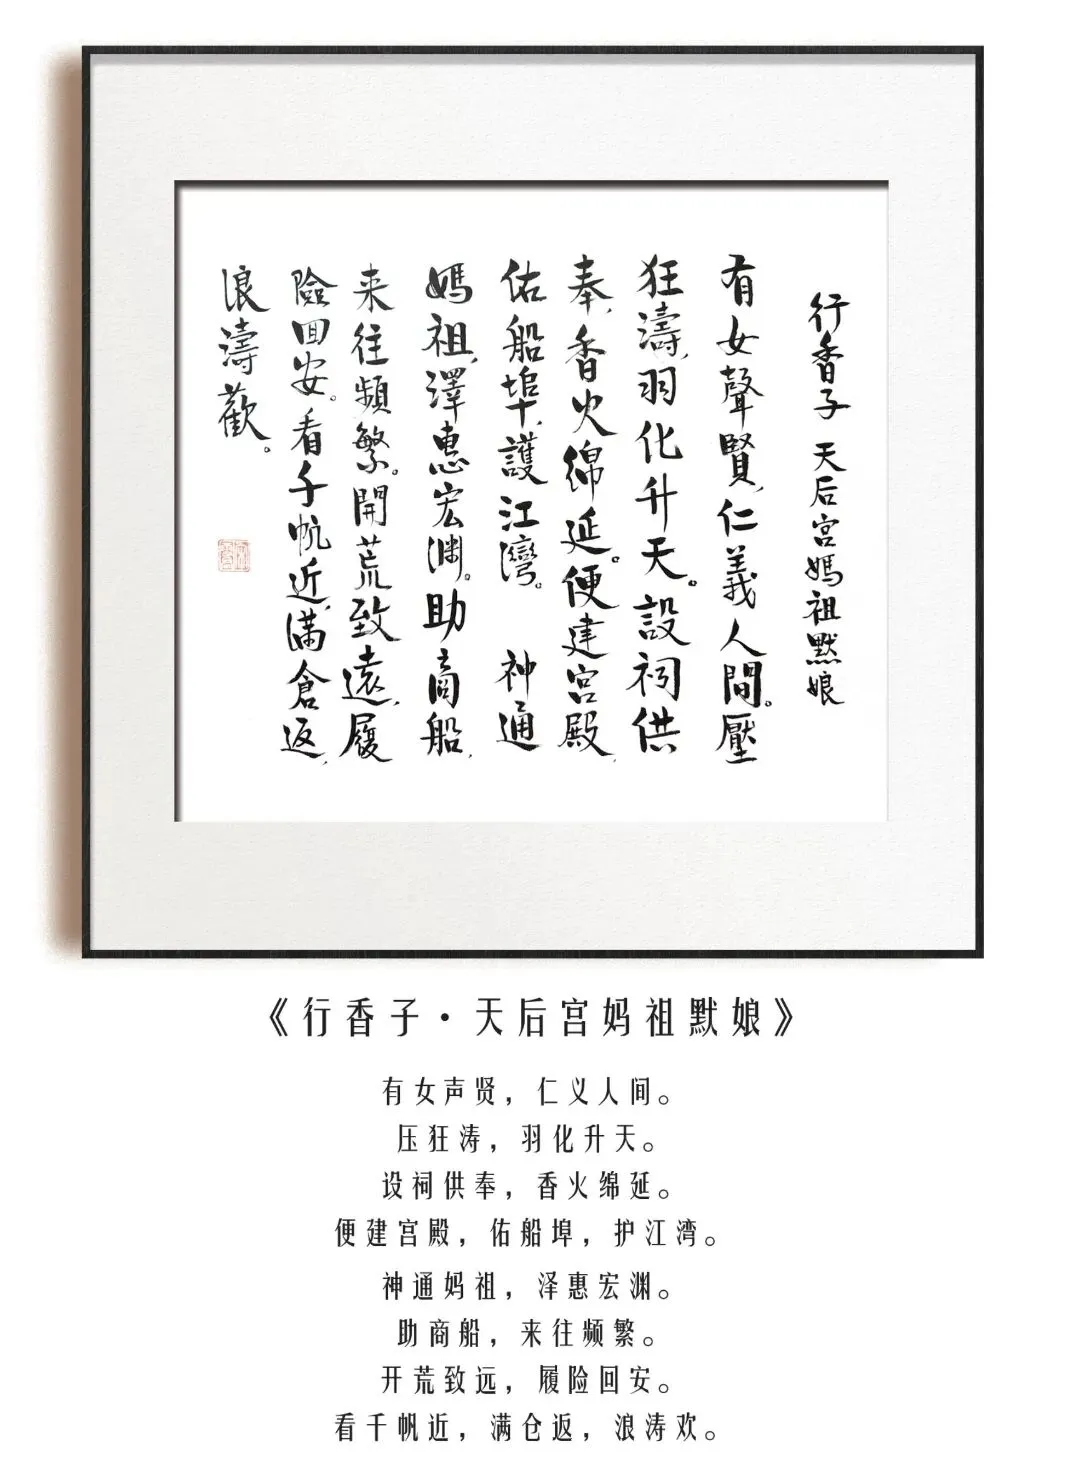 行香子 天后宫媽祖默娘
有女聲賢，仁義人間。壓
狂濤，羽化升天。設祠供
奉，香火绵延。便建宫殿，
佑船埠，護江灣。 神通
媽祖，澤惠宏渊。助商船，
来往頻繁。開荒致遠，履
險回安。看千帆近，满倉返，
浪濤歡。
《行香子·天后宫妈祖默娘》
有女声贤，仁义人间。
压狂涛，羽化升天。
设祠供奉，香火绵延。
便建宫殿，佑船埠，护江湾。
神通妈祖，泽惠宏渊。
助商船，来往频繁。
开荒致远，履险回安。
看千帆近，满仓返，浪涛欢。